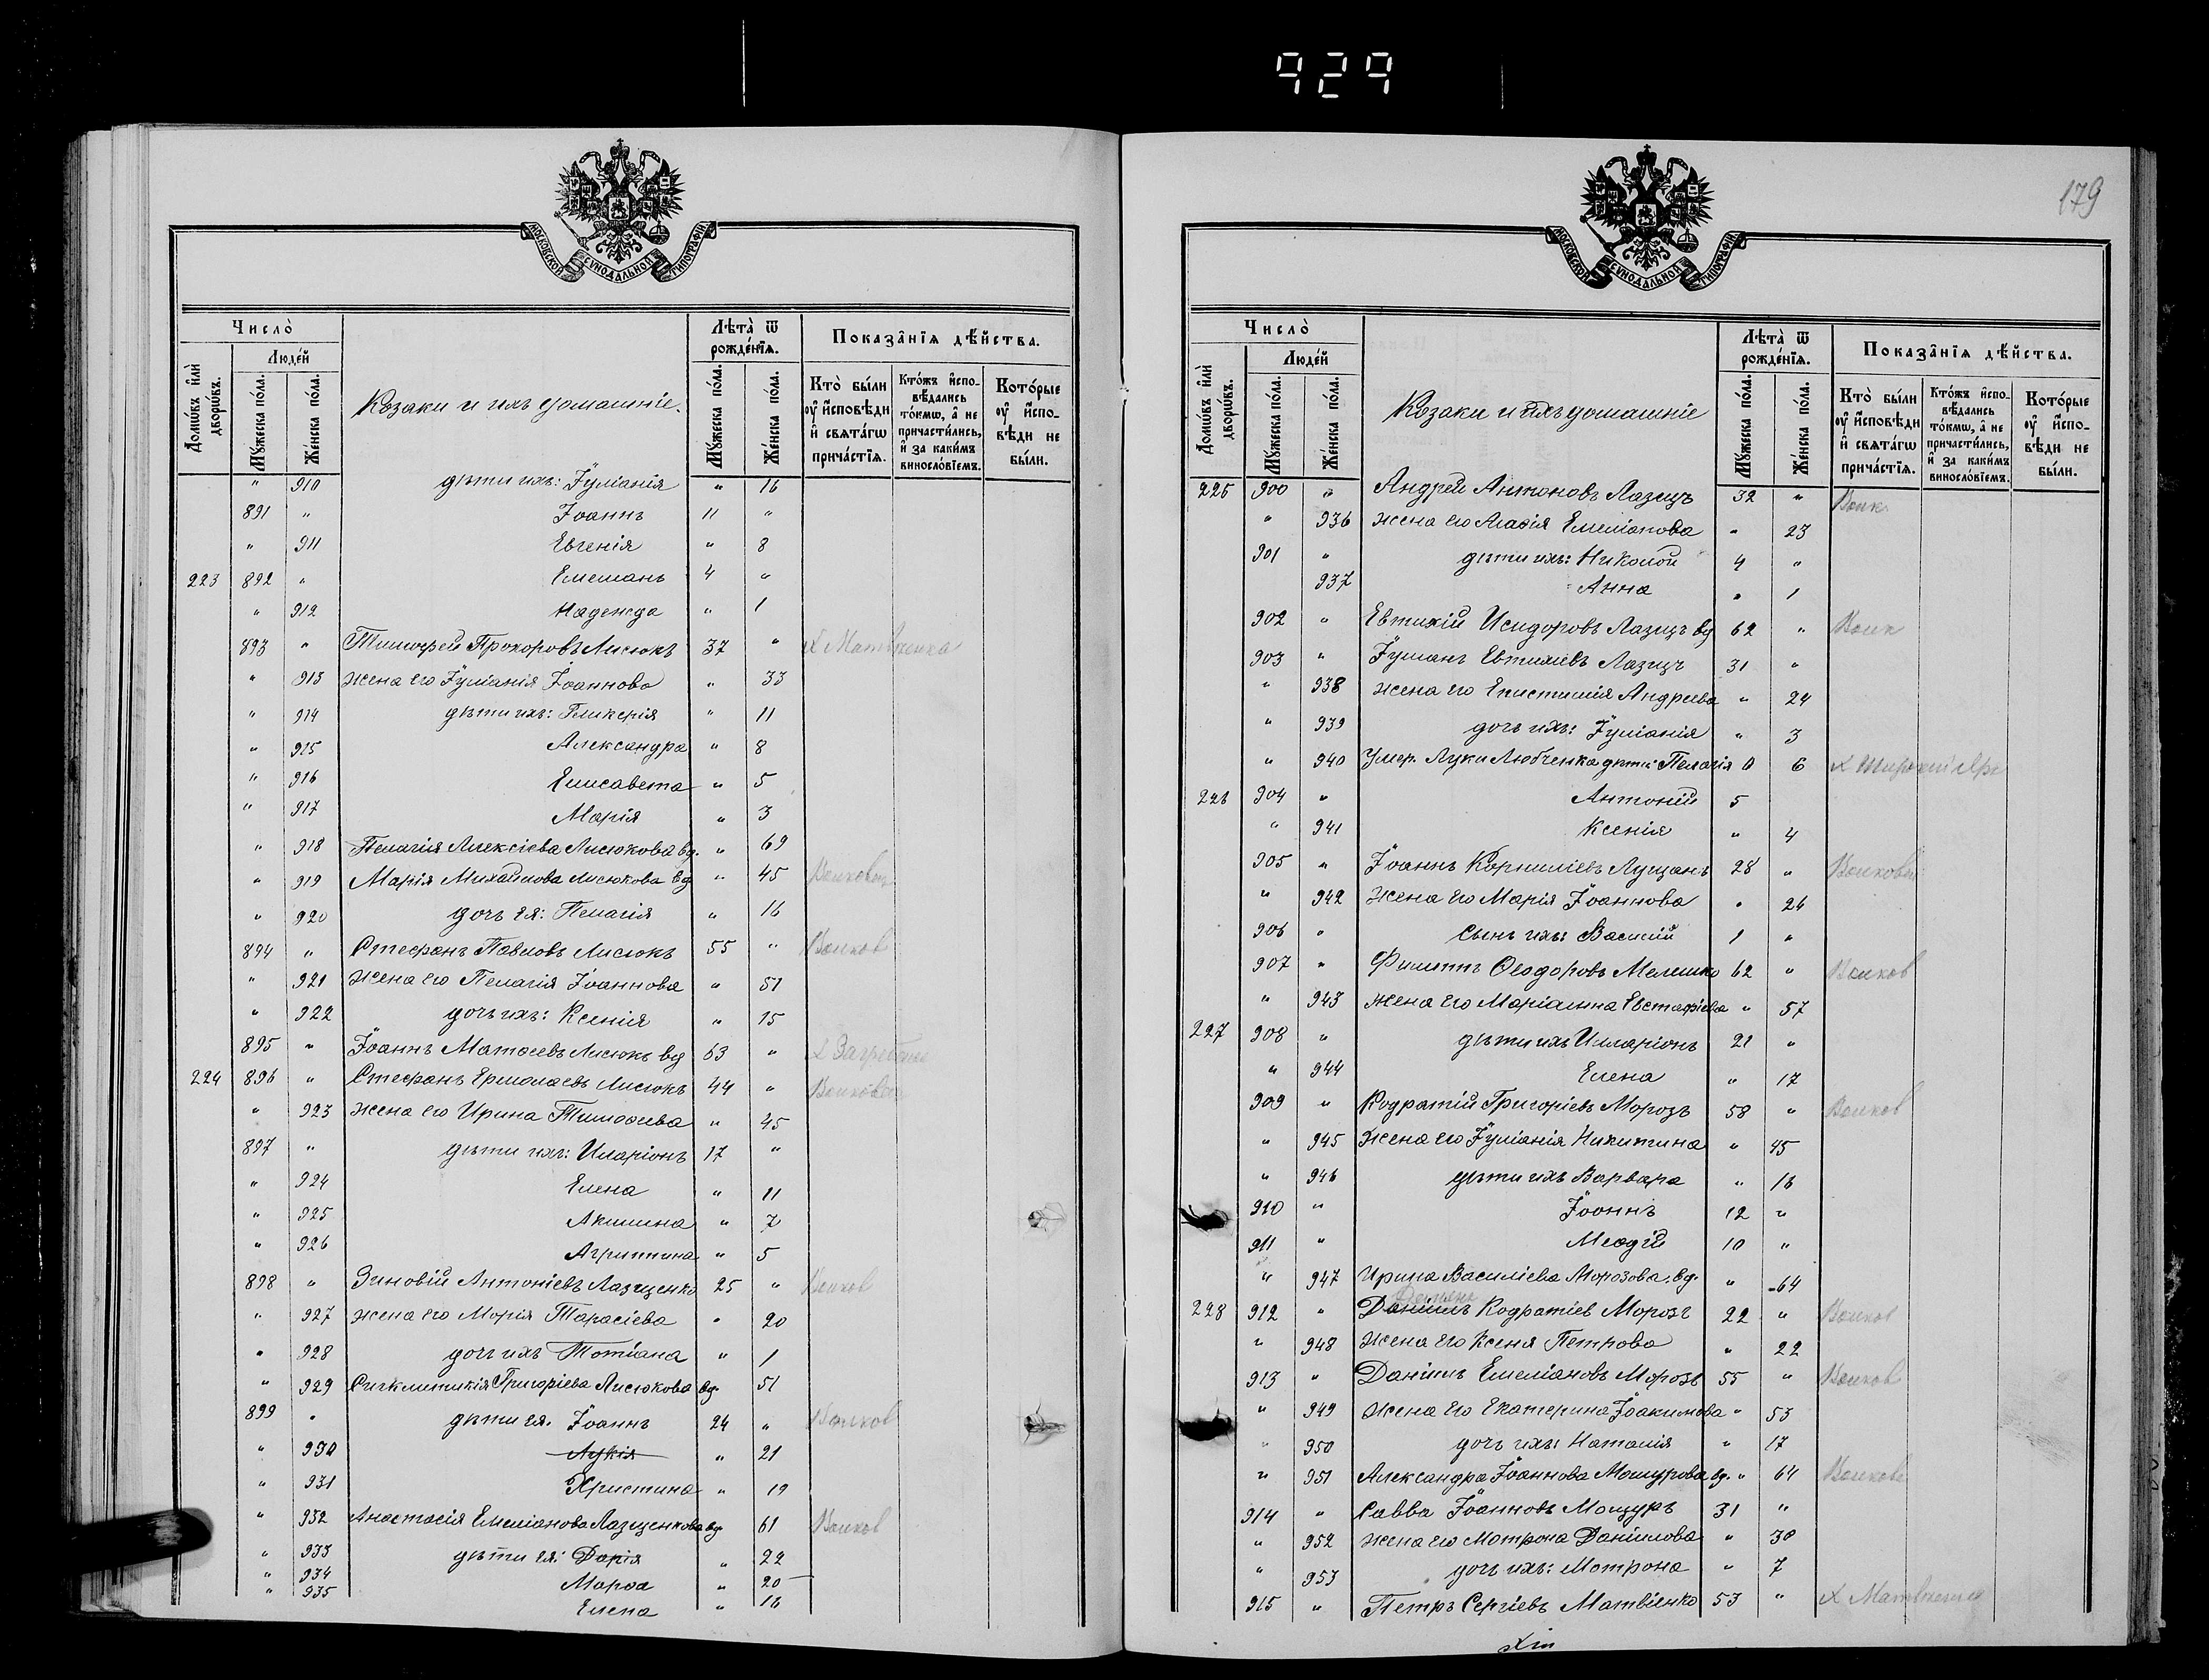 929
МОСКОВСКОЙ СѴНОДАЛЬНОЙ ТИПОГРАФІИ
Число̀
Людей
Домѡвъ и҆лѝ дворѡвъ.
Мꙋжеска по́ла.
Же́нска по́ла.
Козаки и ихъ домашніе.
Лѣта̀ ѿ рожде́нїѧ.
Мꙋжеска по́ла.
Же́нска по́ла.
Показа̑нїѧ дѣ́йства.
Кто̀ бы́ли оу҆ и҆сповѣди и҆ свѧта́гѡ прича́стїѧ.
Кто́жъ и҆споᲂвѣдались то́кмѡ, а҆ не причасти́лись, и҆ за каки́мъ винослóвїемъ.
Кото́рые оу҆ и҆споᲂвѣди не бы́ли.
" 910 дѣти ихъ: Іуліанія " 16
891 " Іоаннъ 11 "
" 911 Евгенія " 8
223 892 " Емеліанъ 4 "
" 912 Надежда " 1
893 " Тимоѳей Прохоровъ Лисюкъ 37 " х Матвѣенка
" 913 жена его Іуліанія Іоаннова " 33
" 914 дѣти ихъ: Гликерія " 11
" 915 Александра " 8
" 916 Елисавета " 5
" 917 Марія " 3
" 918 Пелагія Алексіева Лисюкова вд. " 69
" 919 Марія Михайлова Лисюкова вд " 45
" 920 дочь ея: Пелагія " 16
894 " Стефанъ Павловъ Лисюкъ 55 " Волков
" 921 жена его Пелагія Іоаннова " 51
" 922 дочь ихъ: Ксенія " 15
895 " Іоаннъ Матѳеевъ Лисюкъ вд 63 "
224 896 " Стефанъ Ермолаевъ Лисюкъ 44 "
" 923 жена его Ирина Тимоѳеева " 45
897 " дѣти ихъ: Иларіонъ 17 "
" 924 Елена " 11
" 925 Акилина " 7
" 926 Агриппина " 5
898 " Зиновій Антоніевъ Лазщенко 25 " Волков
" 927 жена его Марія Тарасіева " 20
" 928 дочь ихъ Татіана " 1
" 929 Сигклитикія Григоріева Лисюкова вд. 51
899 " дѣти ея. Іоаннъ 24 " Волков
" 930 Лукія " 21
" 931 Христина " 19
" 932 Анастасія Емеліанова Лазщенкова вд. 61 Волков
" 933 дѣти ея: Дарія " 22
" 934 Марѳа " 20
" 935 Елена " 16
179
МОСКОВСКОЙ СѴНОДАЛЬНОЙ ТИПОГРАФІИ
Число̀
Людей
Домѡвъ и҆лѝ дворѡвъ.
Мꙋжеска по́ла.
Же́нска по́ла.
Козаки и ихъ домашніе
Лѣта̀ ѿ рожде́нїѧ.
Мꙋжеска по́ла.
Же́нска по́ла.
Показа̑нїѧ дѣ́йства.
Кто̀ бы́ли оу҆ и҆сповѣди и҆ свѧта́гѡ прича́стїѧ.
Кто́жъ и҆споᲂвѣдались то́кмѡ, а҆ не причасти́лись, и҆ за каки́мъ винослóвїемъ.
Кото́рые оу҆ и҆споᲂвѣди не бы́ли.
225 900 " Андрей Антоновъ Лазщъ 32 " Волк
" 936 жена его Агаѳія Емеліанова " 23
901 " дѣти ихъ: Николай 4 "
937 Анна " 1
902 " Евтихій Исидоровъ Лазщъ вд 62 " Волк
903 " Іуліанъ Евтихіевъ Лазщъ 31 "
" 938 жена его Епистимія Андреева " 24
" 939 дочь ихъ: Іуліанія " 3
" 940 Умер. Луки Любченка дѣти: Пелагія 0 6
226 904 " Антоній 5
" 941 Ксенія " 4
905 " Іоаннъ Корниліевъ Лущанъ 28 "
" 942 жена его Марія Іоаннова " 24
906 " сынъ ихъ: Василій 1 "
907 " Филиппъ Ѳеодоровъ Мелешко 62 " Волков
" 943 жена его Маріанна Евстафіева " 57
227 908 " дѣти ихъ Илларіонъ 21 "
" 944 Елена " 17
909 " Кодратій Григоріевъ Морозъ 58 " Волков
" 945 жена его Іуліанія Никитина " 45
" 946 дѣти ихъ Варвара " 16
910 " Іоаннъ 12 "
911 " Меѳодій 10 "
" 947 Ирина Василіева Морозова. вд. " 64
228 912 " Даніилъ Кодратіев Морозъ 22 " Волков
" 948 жена его Ксенія Петрова " 22
913 " Даніилъ Емеліановъ Морозъ 55 " Волков
" 949 жена его Екатерина Іоакимова " 53
" 950 дочь ихъ: Наталія " 17
" 951 Александра Іоаннова Мащурова вд. " 64 Волков
914 " Савва Іоанновъ Мащуръ 31 "
" 952 жена его Матрона Даніилова " 30
" 953 дочь ихъ: Матрона " 7
915 " Петръ Сергіевъ Матвіенко 53 "